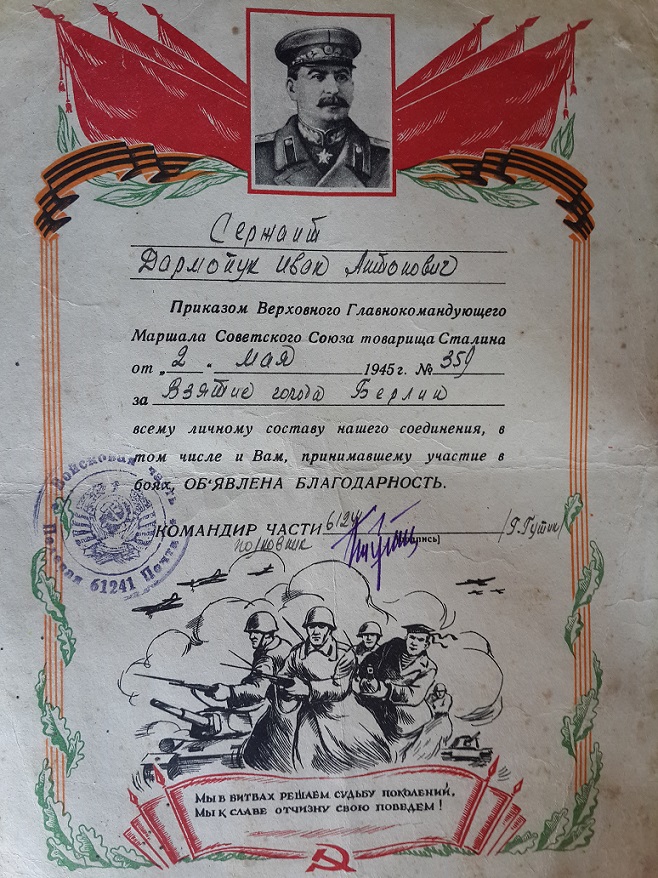 Сержант
Дармопук Иван Антонович
Приказом Верховного Главнокомандующего
Маршала Советского Союза товарища Сталина
от „2“ мая 1945 г. № 359
за Взятие города Берлин
всему личному составу нашего соединения, в
том числе и Вам, принимавшему участие в
боях, ОБ'ЯВЛЕНА БЛАГОДАРНОСТЬ.
Войсковая часть
Полевая 61241 Почта
КОМАНДИР ЧАСТИ 61241 /Г. Гутин/
полковник
МЫ В БИТВАХ РЕШАЕМ СУДЬБУ ПОКОЛЕНИЙ,
МЫ К СЛАВЕ ОТЧИЗНУ СВОЮ ПОВЕДЕМ!